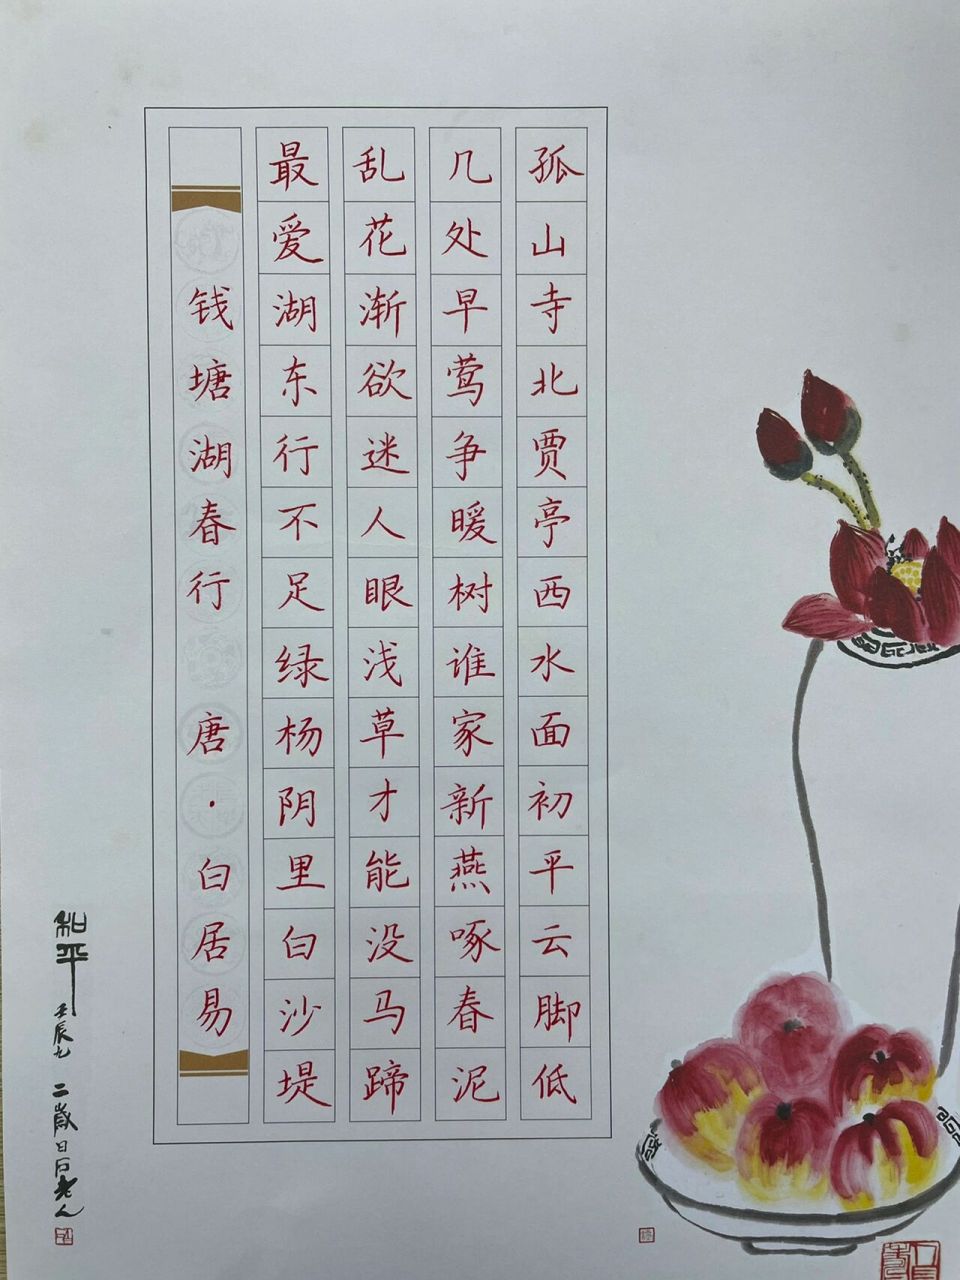 孤山寺北贾亭西水面初平云脚低
几处早莺争暖树谁家新燕啄春泥
乱花渐欲迷人眼浅草才能没马蹄
最爱湖东行不足绿杨阴里白沙堤
钱塘湖春行 唐·白居易
和平